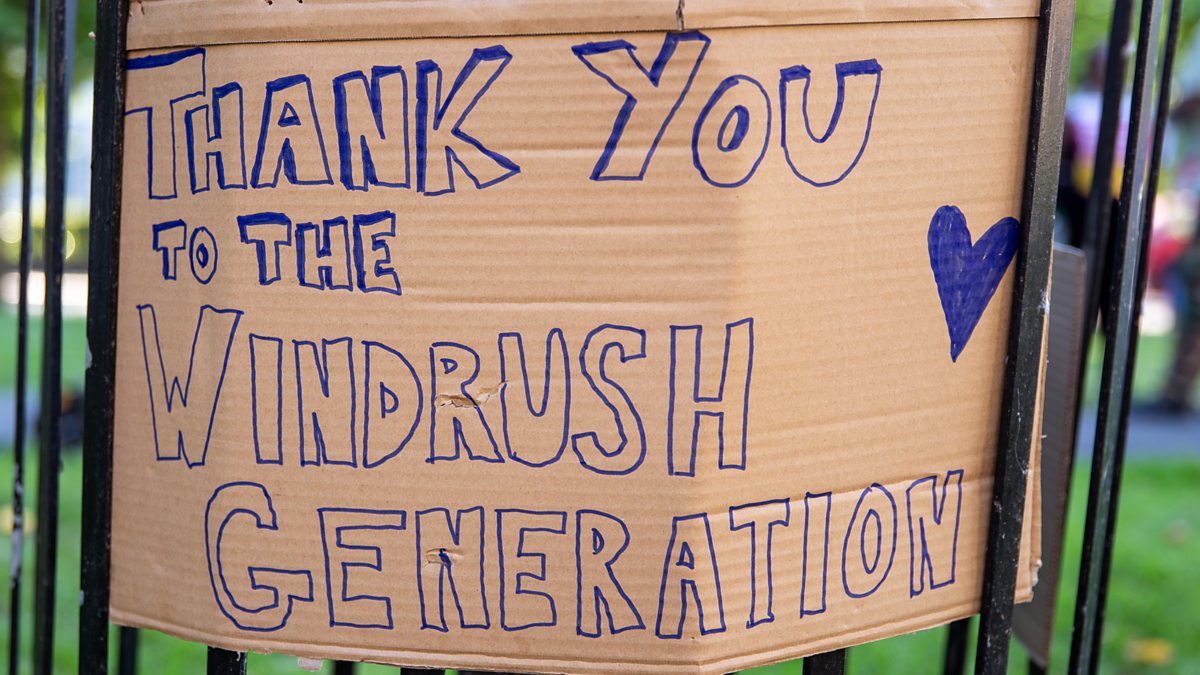 THANK YOU
TO THE
WINDRUSH
GENERATION